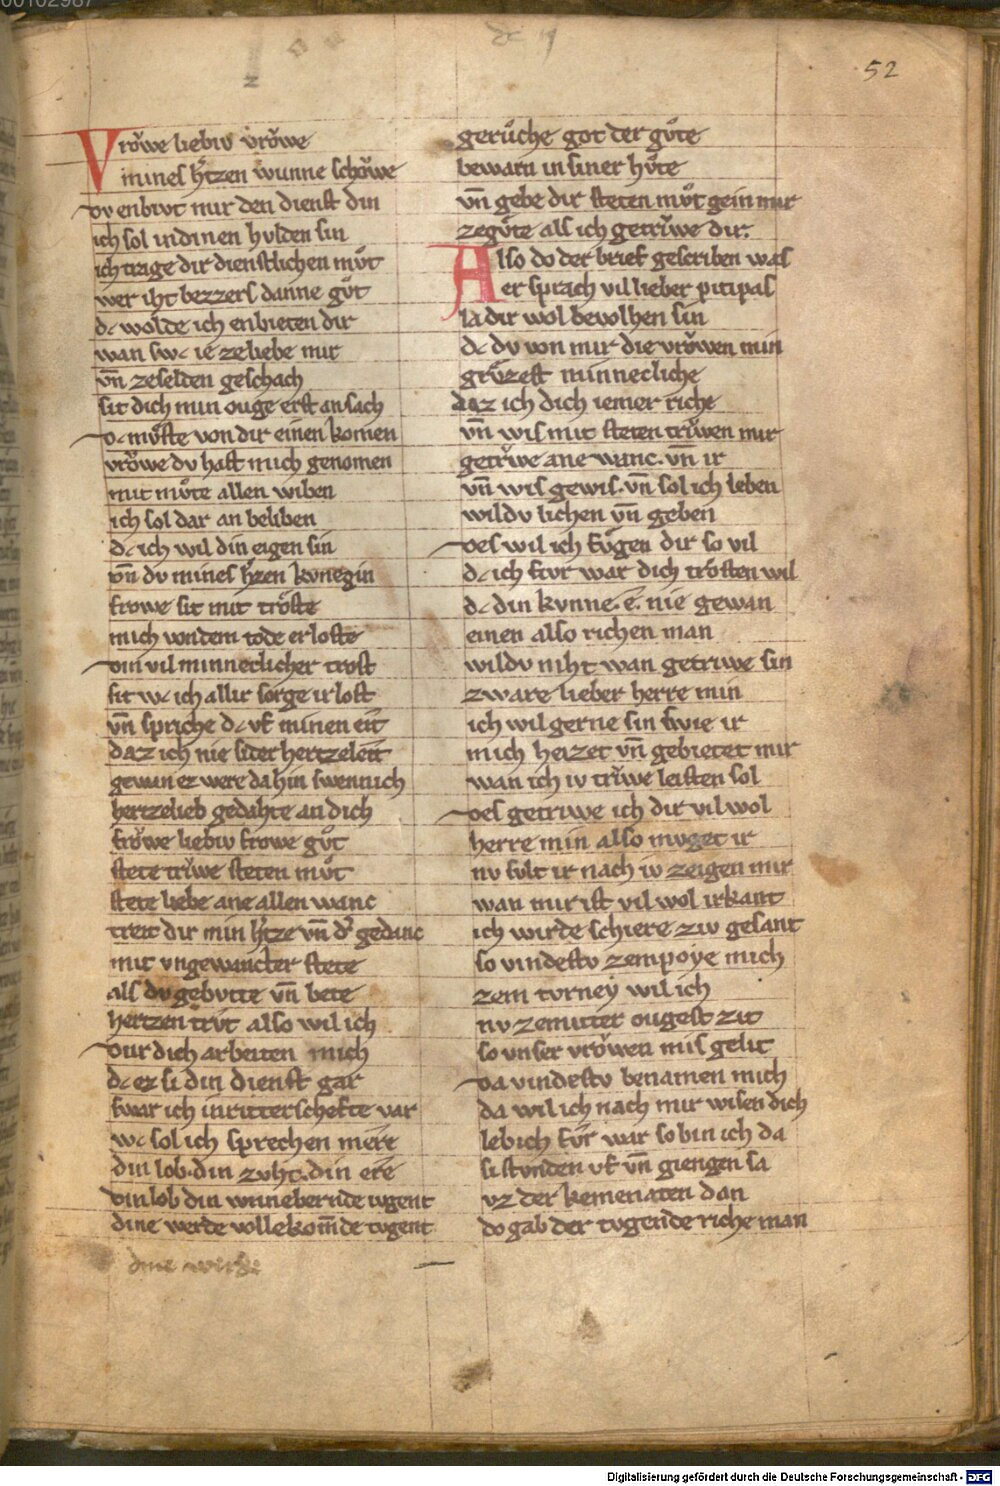 00102987
52
Vrǒwe liebiv vrǒwe
mines h̾tzen wunne schǒwe
dv enbivt mir den dienst din
ich sol indinen hvlden sin
ich trage dir dienstlichen mv̊t
wer iht bezzers danne gv̊t
dc wolde ich enbieten dir
wan swc ie zeliebe mir
vn̄ zeselden geschach
sit dich min ouge erst an sach
dc mv̊ste von dir einen komen
vrǒwe dv hast mich genomen
mit mv̊te allen wiben
ich sol dar an beliben
dc ich wil din eigen sin
vn̄ dv mines h̾zen kvnegin
frowe sit mir trǒste
mich von dem tode erloste
din vil minneclicher trost
sit wc ich allir sorge irlost
vn̄ spriche dc vf minen eit
daz ich nie sider hertzeleit
gewan ez were da hin swenn ich
hertzelieb gedahte an dich
frǒwe liebiv frowe gv̊t
stete trv̊we steten mv̊t
stete liebe ane allen wanc
treit dir min h̾tze vn̄ d̾ gedanc
mit vngewancter stete
als dv gebvtte vn̄ bete
hertzen trv̊t also wil ich
dur dich arbeiten mich
dc ez si din dienst gar
swar ich inritterschefte var
wc sol ich sprechen mere
din lob. din zvht. din ere
din lob din wnnebernde tvgent
dine werde vollekom̄de tvgent
dine wirde
gerv̊che got der gv̊te
bewarn in siner hv̊te
vn̄ gebe dir steten mv̊t gein mir
zegv̊te als ich getrv̊we dir.
Also do der brief gescriben was
er sprach vil lieber pitipas
la dir wol bevolhen sin
dc dv von mir die vrǒwen min
grv̊zest minnecliche
daz ich dich iemer riche
vn̄ wis mit steten trv̊wen mir
getrv̊we ane wanc. vn̄ ir
vn̄ wis gewis. vn̄ sol ich leben
wildv lichen vn̄ geben
des wil ich fv̊gen dir so vil
dc ich fvr war dich trosten wil
dc din kvnne. e. nie gewan
einen also richen man
wildv niht wan getriwe sin
zware lieber herre min
ich wil gerne sin swie ir
mich heizet vn̄ gebietet mir
wan ich iv trv̊we leisten sol
des getriwe ich dir vil wol
herre min also mvget ir
nv svlt ir nach iv zeigen mir
wan mir ist vil wol irkant
ich wirde schiere ziv gesant
so vindestv zempoye mich
zem tvrney wil ich
nv zemitter ougest zit
so vnser vrǒwen mis gelit
da vindestv benamen mich
da wil ich nach mir wisen dich
leb ich fv̊r war so bin ich da
si stvnden vf vn̄ giengen sa
vz der kemenaten dan
do gab der tvgende riche man
Digitalisierung gefördert durch die Deutsche Forschungsgemeinschaft - DFG